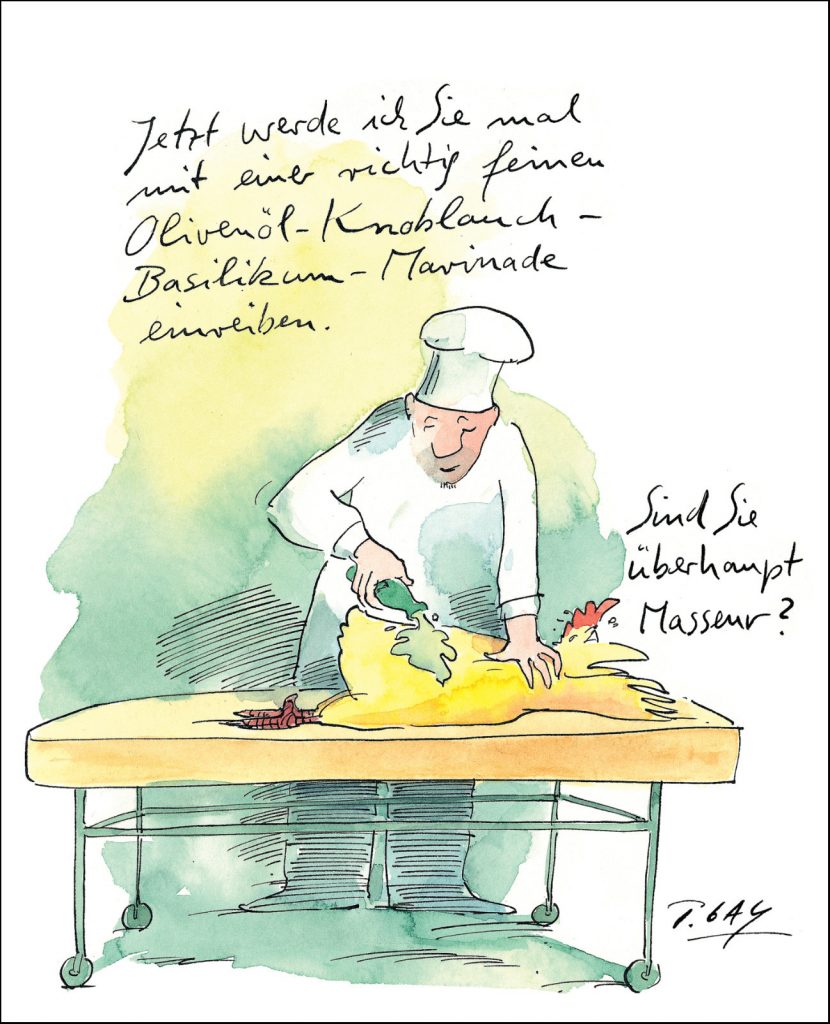 Jetzt werde ich Sie mal
mit einer richtig feinen
Olivenöl-Knoblauch-
Basilikum-Marinade
einreiben.
Sind Sie
überhaupt
Masseur?
P. GAY